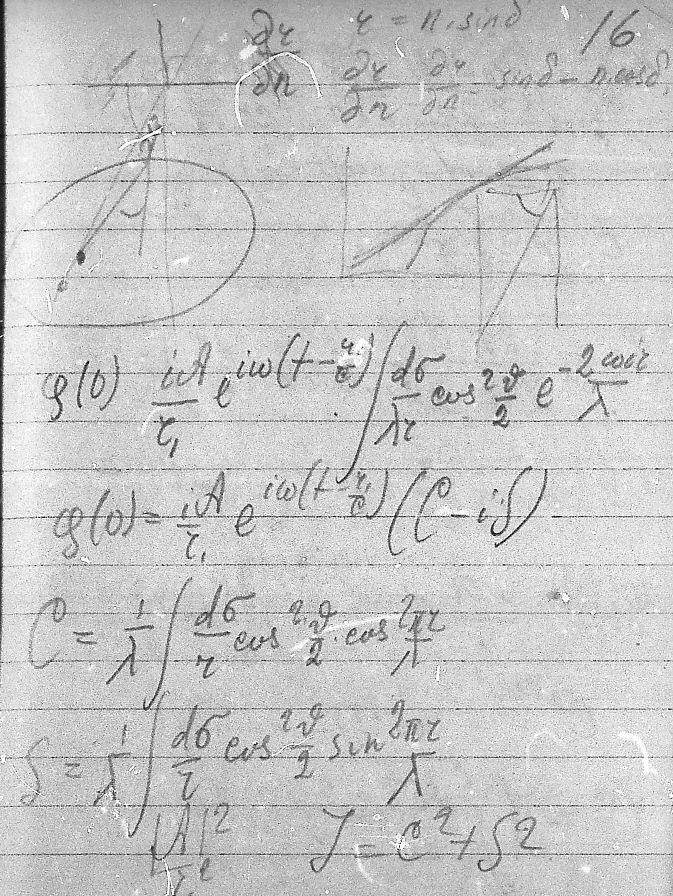 ∂r/∂n r = n. sin δ 16
∂r/∂n ∂r/∂n sin δ – n cos δ.
φ(0) iA/r₁ e^{iω(t – r₁/c)} ∫ dσ/λr cos² ϑ/2 e^{–2πir/λ}
φ(0) = iA/r₁ e^{iω(t – r₁/c)} (C – iS)
C = 1/λ ∫ dσ/r cos² ϑ/2 . cos 2πr/λ
S = 1/λ ∫ dσ/r cos² ϑ/2 sin 2πr/λ
|A|²/r² J = C² + S²